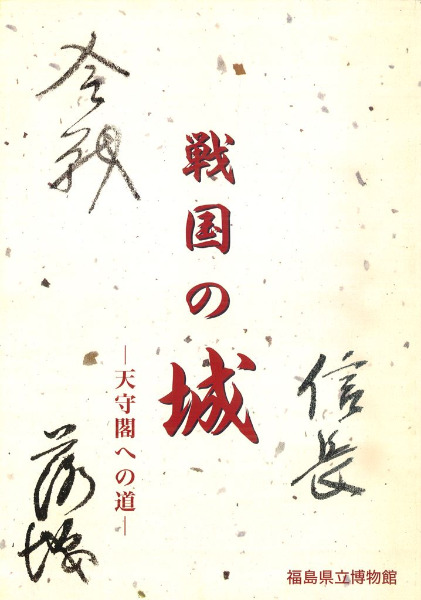 合戦
戦国の城
―天守閣への道―
信長
落城
福島県立博物館